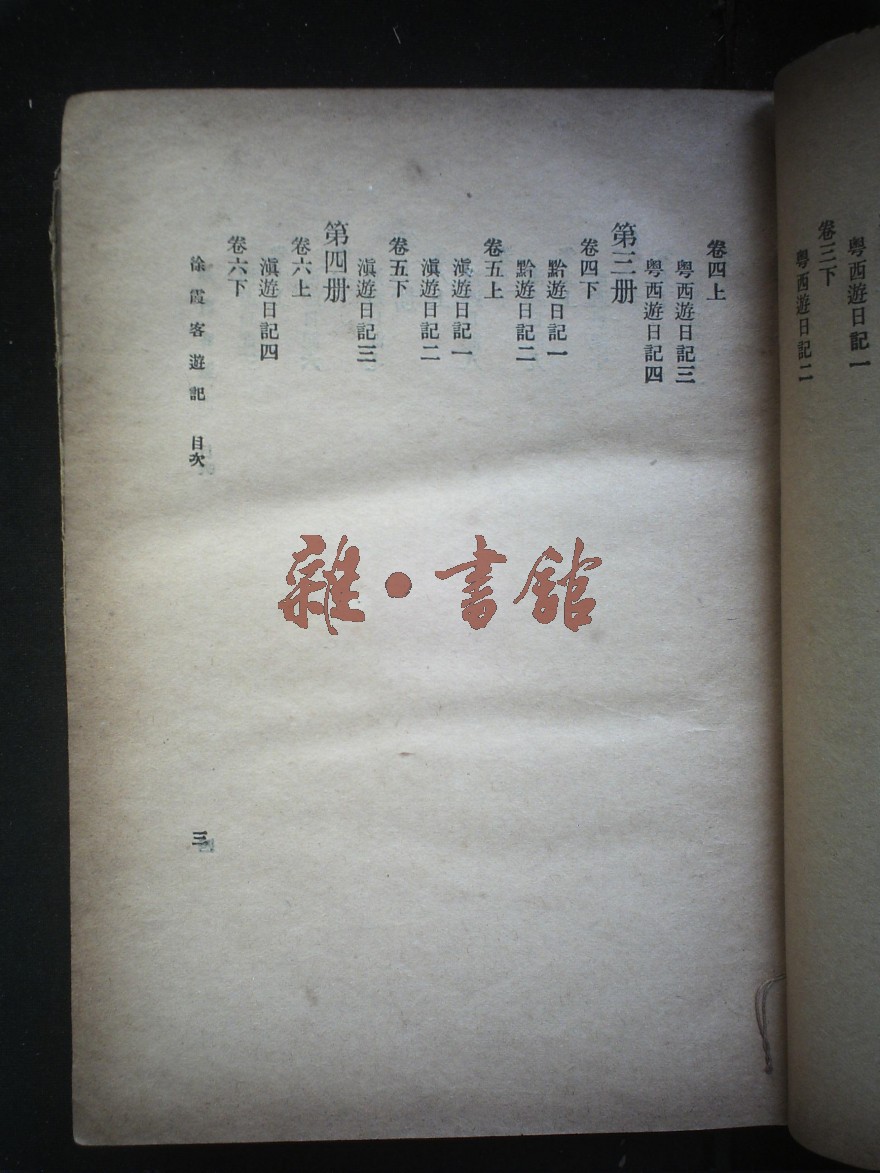 粵西遊日記一
卷三下
粵西遊日記二
卷四上
粵西遊日記三
粵西遊日記四
第三册
卷四下
黔遊日記一
黔遊日記二
卷五上
滇遊日記一
滇遊日記二
卷五下
滇遊日記三
第四册
卷六上
滇遊日記四
卷六下
徐霞客遊記 目次
三
雜·書館